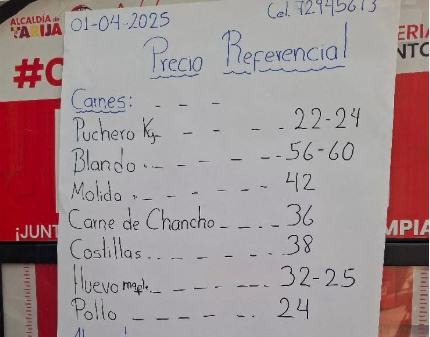 ALCALDÍA de
TARIJA
01-04-2025
Cel. 72945613
Precio Referencial
#C
Carnes: - - -
Puchero Kg - - - - 22-24
Blando - - - - - - 56-60
Molida - - - - - - 42
Carne de Chancho - - - - 36
Costillas - - - - - - 38
Huevo maple - - - - - 32-25
Pollo - - - - - - 24
¡JUNT
MPIA